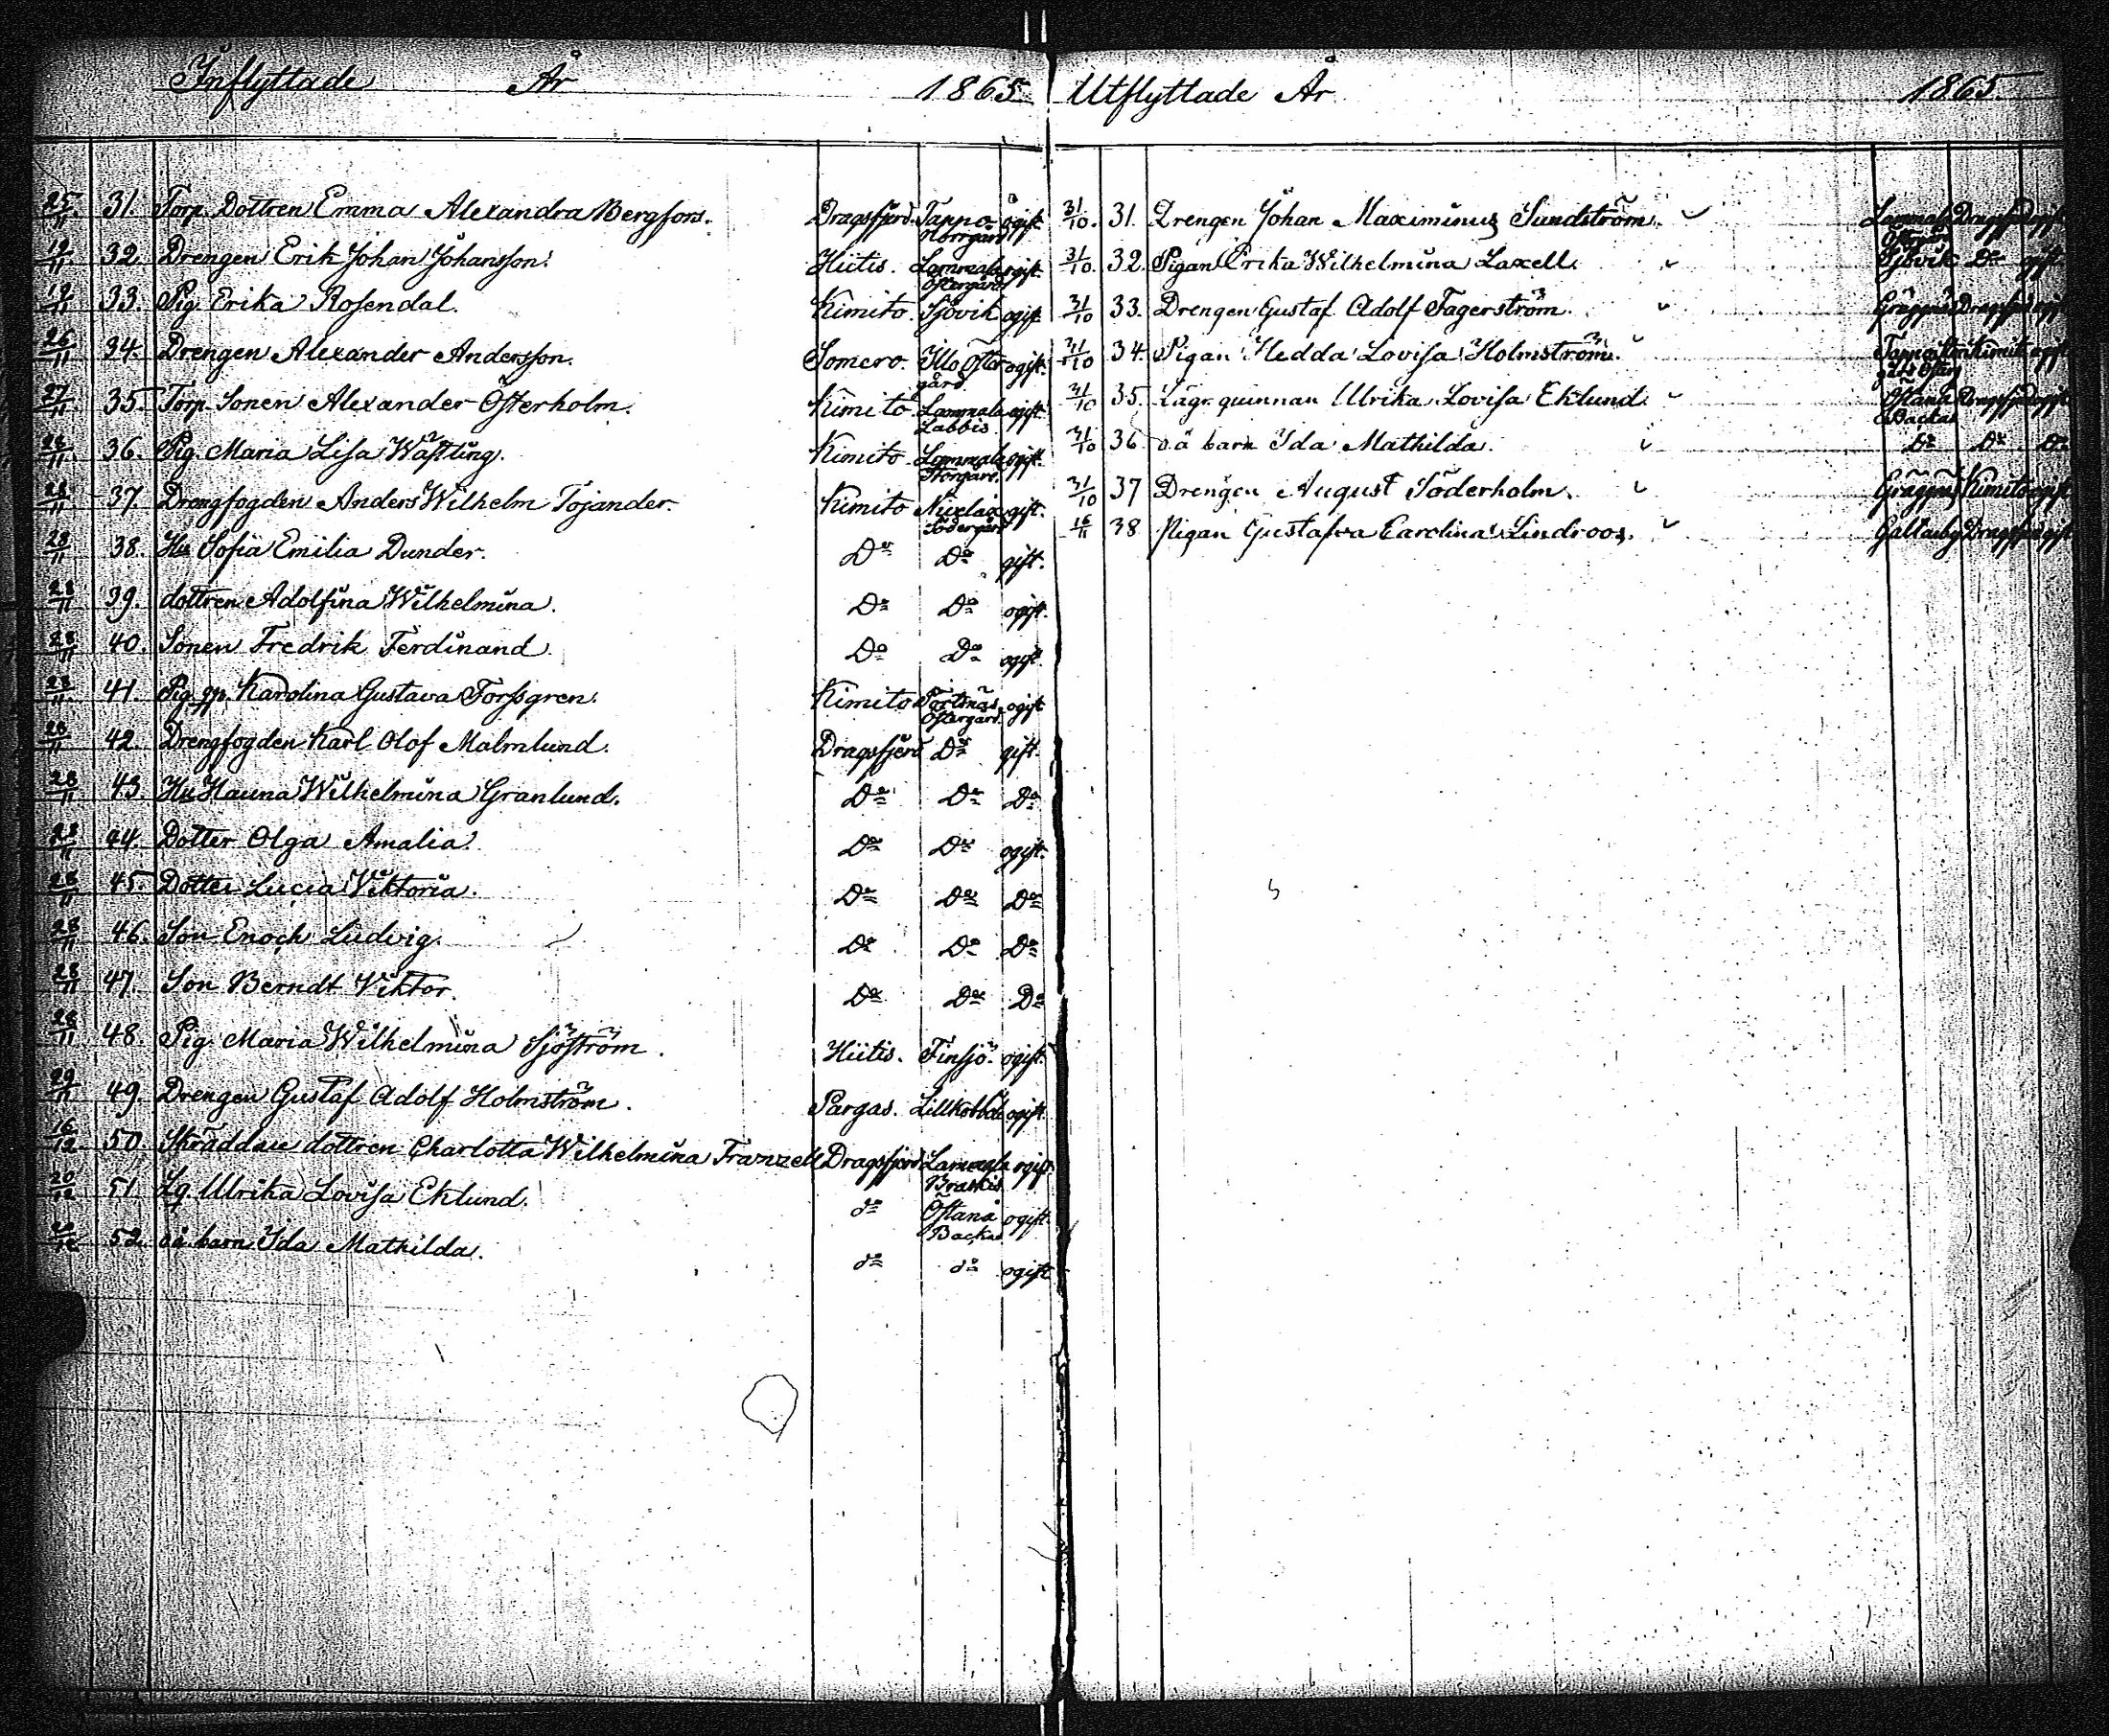 Inflyttade År 1865
25/11 31. Torp. Dottren Emma Alexandra Bergfors. Dragsfjerd. Tappo Norrgård ogift
19/11 32. Drengen Erik Johan Johansson. Hiitis. Lammala Östergård ogift.
19/11 33. Pig. Erika Rosendal. Kimito. Sjövik ogift
26/11 34. Drengen Alexander Andersson. Somero. Illo Östergård ogift.
27/11 35. Torp. Sonen Alexander Österholm. Kimito Lammala Labbis ogift.
28/11 36. Pig. Maria Lisa Wästling. Kimito Lammala Storgård. ogift.
28/11 37. Drengfogden Anders Wilhelm Tojander. Kimito Nivelax Södergård gift.
28/11 38. Hu Sofia Emilia Dunder. Do Do gift.
28/11 39. dottren Adolfina Wilhelmina. Do Do ogift.
28/11 40. Sonen Fredrik Ferdinand. Do Do ogift.
28/11 41. Pig. Karolina Gustava Forssgren. Kimito Östergård. ogift
28/11 42. Drengfogden Karl Olof Malmlund. Dragsfjerd Do gift.
28/11 43. Hu Hanna Wilhelmina Granlund. Do Do Do
28/11 44. Dotter Olga Amalia. Do Do ogift.
28/11 45. Dotter Lucia Viktoria. Do Do Do
28/11 46. Son Enoch Ludvig. Do Do Do
28/11 47. Son Berndt Viktor. Do Do Do
28/11 48. Pig. Maria Wilhelmina Sjöström. Hiitis. Finsjö. ogift.
29/11 49. Drengen Gustaf Adolf Holmström. Pargas. ogift.
16/12 50. Skräddare dottren Charlotta Wilhelmina Franzell Dragsfjerd Lammala Braskis ogift
20/12 51. Lg. Ulrika Lovisa Eklund. do Östanå Backas ogift.
20/12 52. o.ä. barn Ida Mathilda. do do ogift
Utflyttade År 1865.
31/10. 31. Drengen Johan Maximinus Sundström. Lammala Östergård Dragsfjerd ogift
31/10. 32. Pigan Erika Wilhelmina Laxell. Sjövik Do ogift
31/10 33. Drengen Gustaf Adolf Fagerström. Gräggnäs Dragsfjerd ogift
31/10 34. Pigan Hedda Lovisa Holmström. Kimito ogift
31/10 35. Lägr. quinnan Ulrika Lovisa Eklund. Östanå Backas Dragsfjerd ogift
31/10 36. o.ä barn Ida Mathilda. Do Do Do
31/10 37 Drengen August Söderholm. Gräggnäs Kimito ogift
16/11 38 Pigan Gustafva Carolina Lindroos. Galtarby Dragsfjerd ogift